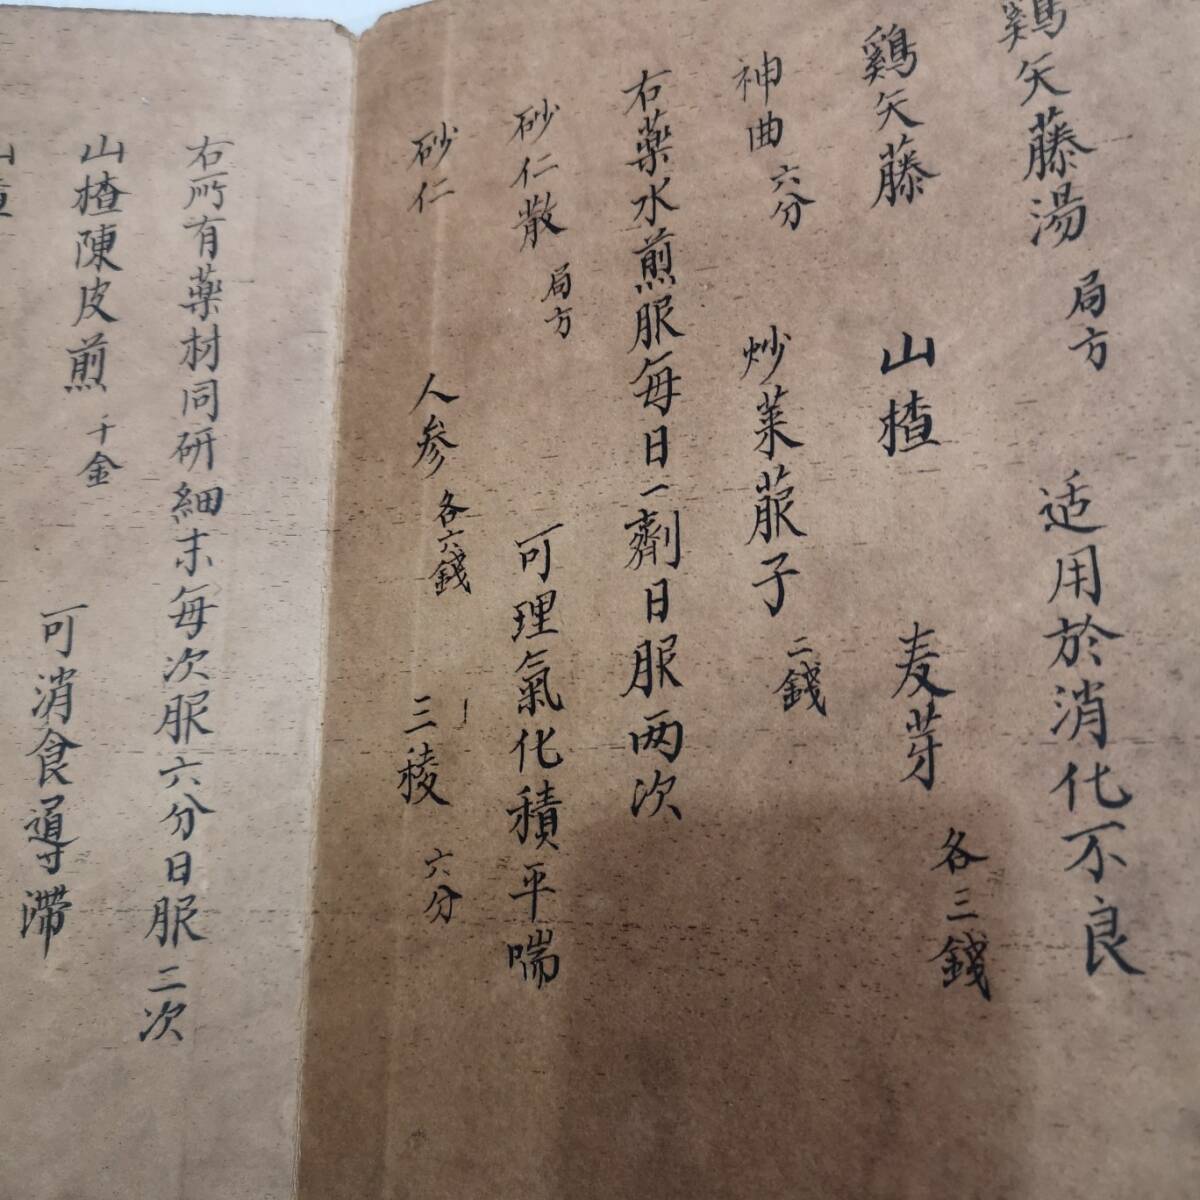 鷄矢藤湯 局方 适用於消化不良
鷄矢藤 山楂 麦芽 各三錢
神曲 六分 炒菜菔子 二錢
右藥水煎服每日一劑日服两次
砂仁散 局方 可理氣化積平喘
砂仁 人参 各六錢 三稜 六分
右所有藥材同研細末每次服六分日服二次
山楂陳皮煎 千金 可消食導滯
山楂